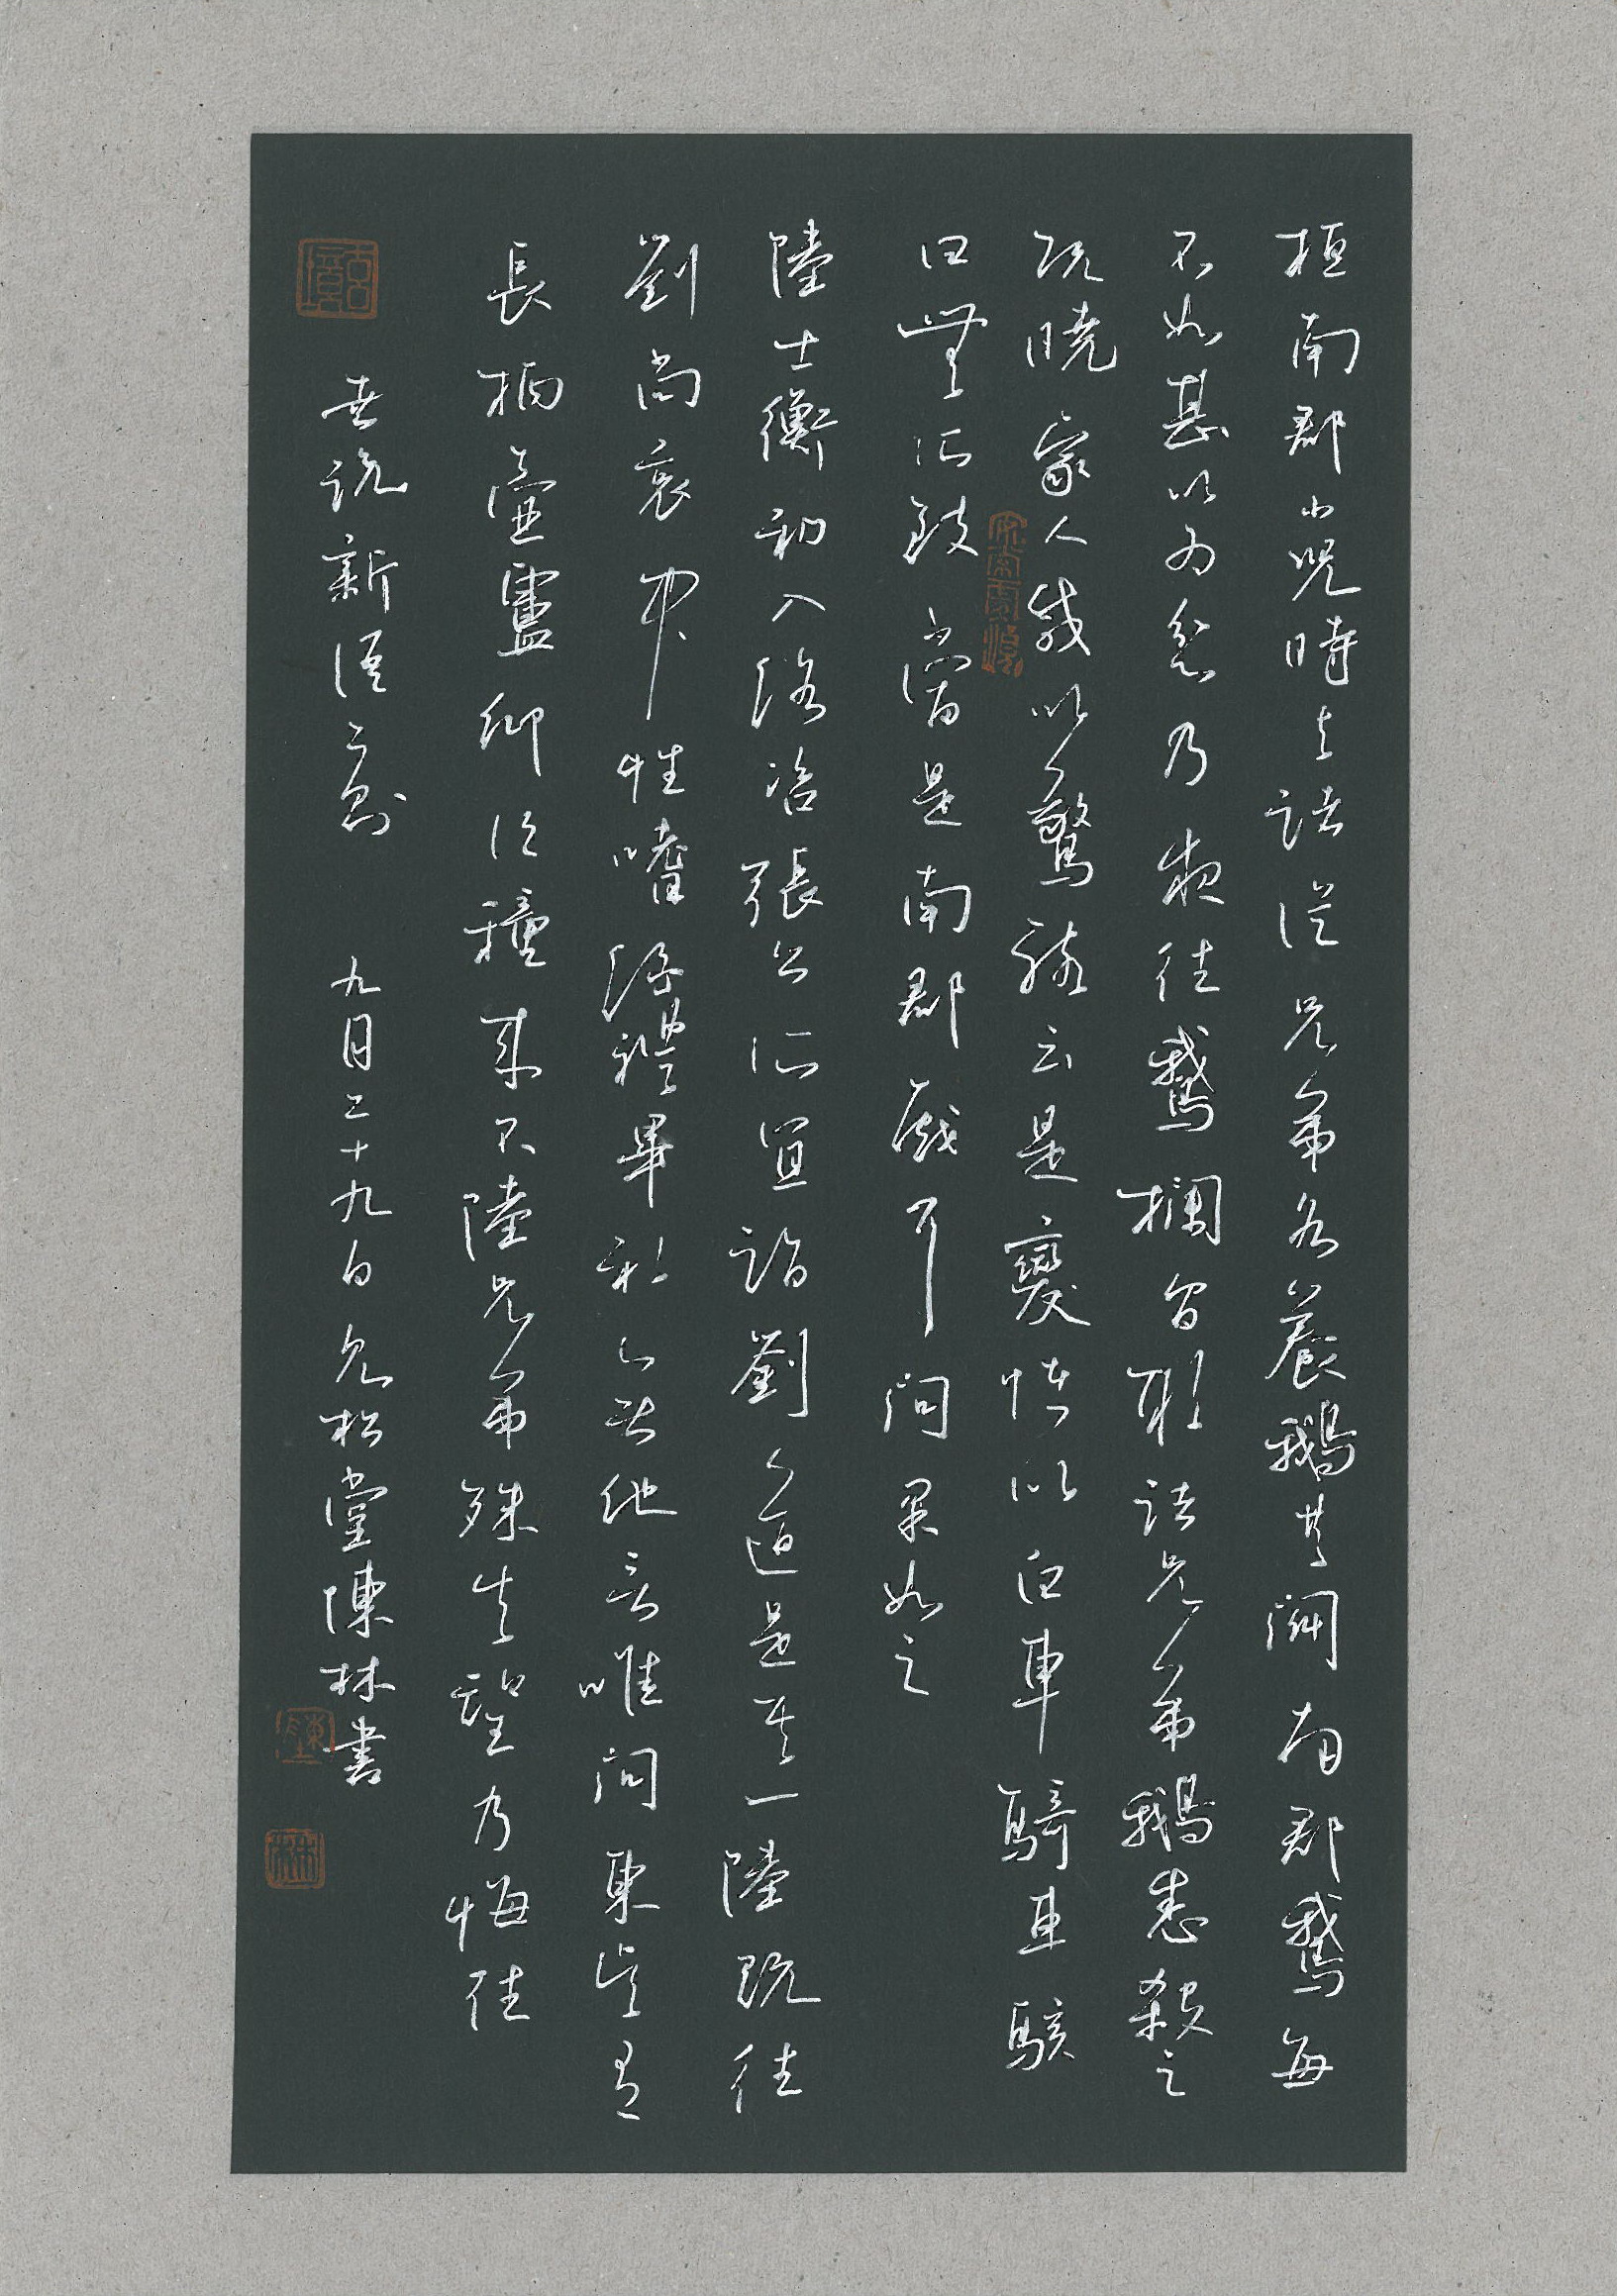 桓南郡小兒時與諸從兄弟各養鵝共鬭南郡鵝每
不如甚以為忿乃夜往鵝欄間取諸兄弟鵝悉殺之
既曉家人咸以驚駭云是變怪以白車騎車騎
曰無所致當是南郡戲耳問果如之
陸士衡初入洛咨張公所宜詣劉道是其一陸既往
劉尚哀中性嗜酒禮畢初無他言唯問東吳有
長柄壺盧卿得種來不陸兄弟殊失望乃悔往
世說新語二則 九月二十九日松堂陳林書
陳
林